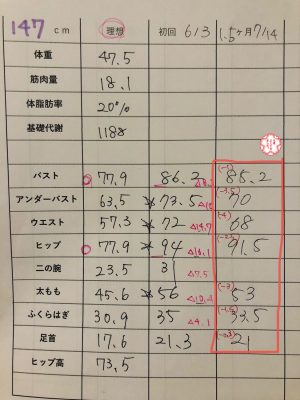 147 cm 理想 初回 6/3 1.5ヶ月 7/14
体重 47.5
筋肉量 18.1
体脂肪率 20%
基礎代謝 1188
バスト 77.9 86.2 (-1) 85.2
アンダーバスト 63.5 73.5 △10 (-3.5) 70
ウエスト 57.3 72 △14.7 (-4) 68
ヒップ 77.9 94 △16.1 (-2.5) 91.5
二の腕 23.5 31 △7.5
太もも 45.6 56 △10.4 (-3) 53
ふくらはぎ 30.9 35 △4.1 (-1.5) 33.5
足首 17.6 21.3 (-0.3) 21
ヒップ高 73.5